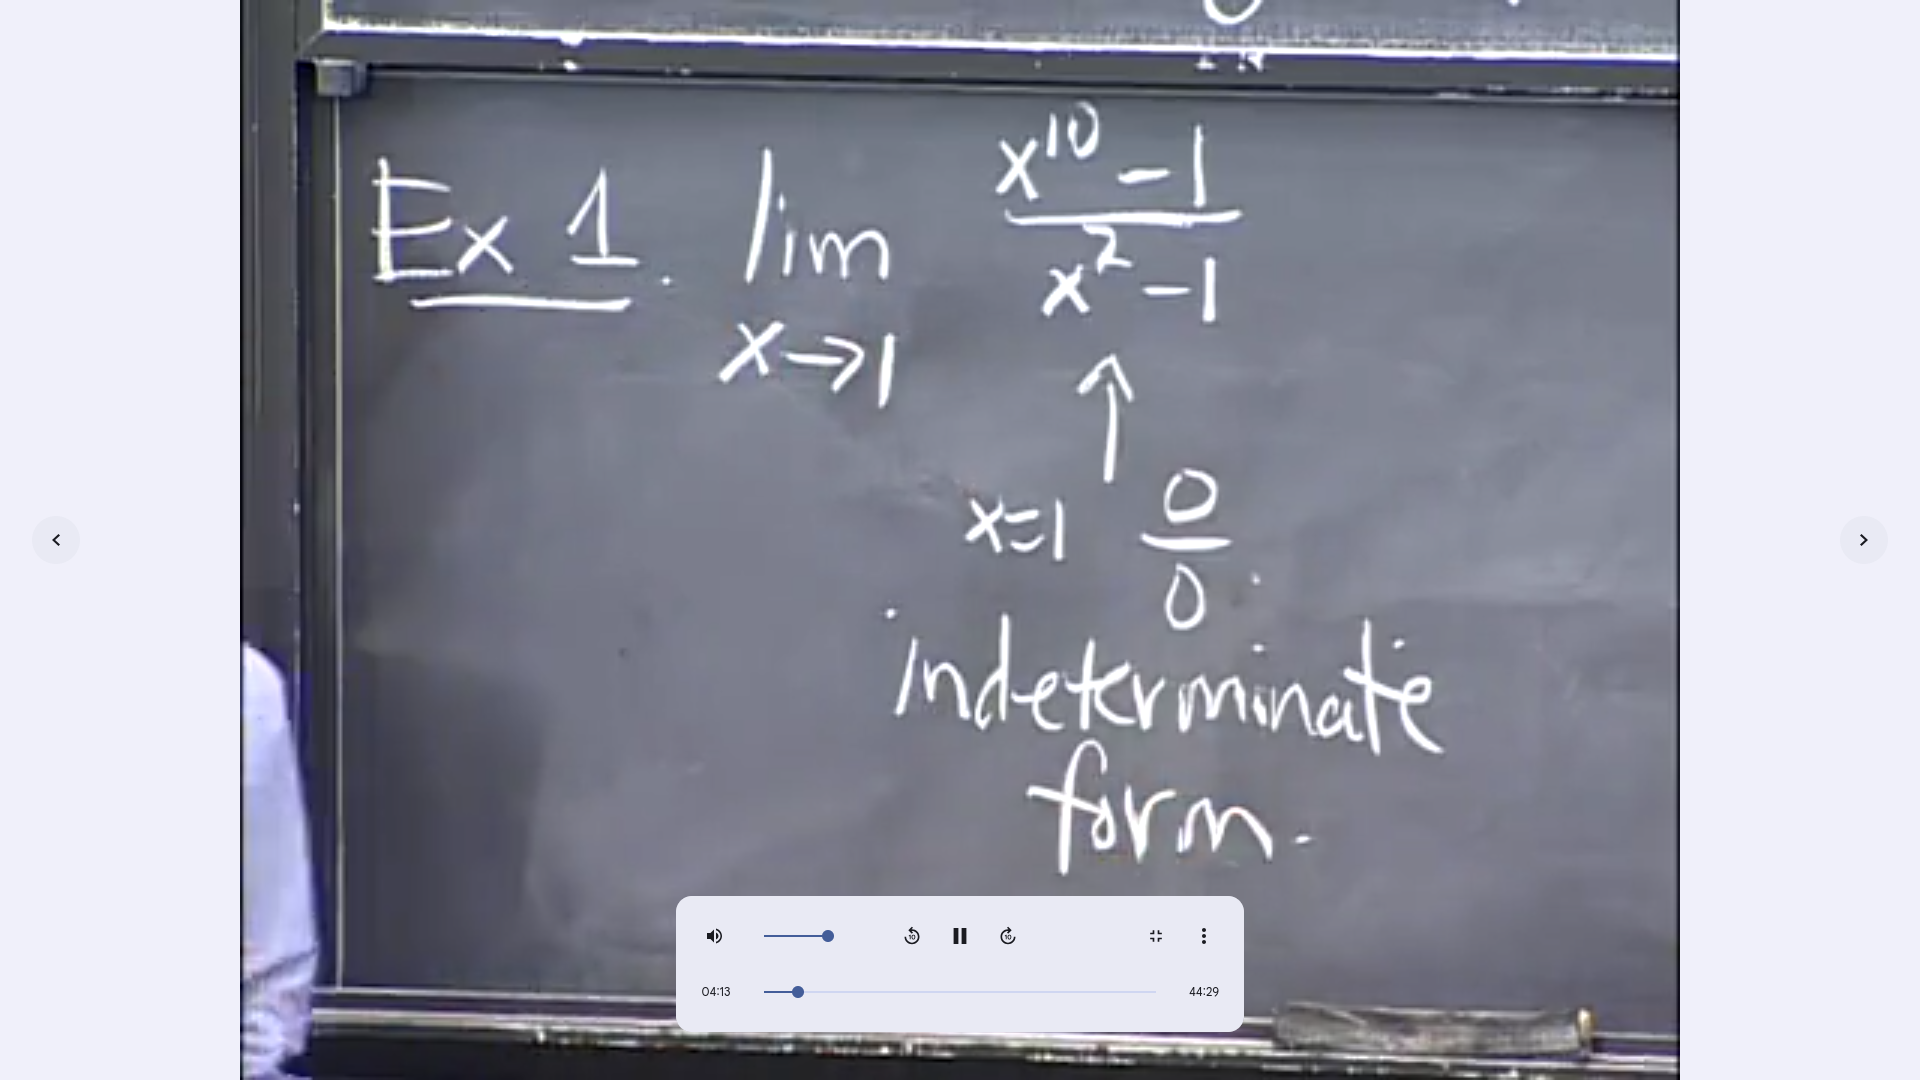 Ex 1. lim x→1 (x^10 - 1)/(x^2 - 1)
↑
x=1 0/0
indeterminate
form.
04:13 44:29